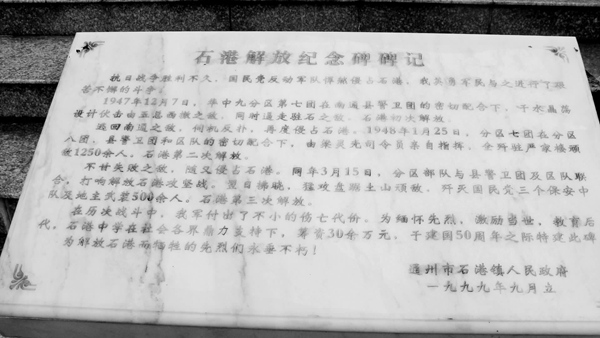 石港解放纪念碑碑记
抗日战争胜利不久，国民党反动军队即侵占石港，我英勇军民与之进行了艰
苦不懈的斗争。
1947年12月7日，华中九分区第七团在南通县警卫团的密切配合下，于水晶荡
设计伏击由五窑西撤之敌，同时逼走驻石之敌，石港初次解放。
逃回南通之敌，伺机反扑，再度侵占石港。1948年1月25日，分区七团在分区
八团、县警卫团和区队的密切配合下，由梁灵光司令员亲自指挥，全歼驻严家楼顽
敌1250余人。石港第二次解放。
不甘失败之敌，随又侵占石港。同年3月15日，分区部队与县警卫团及区队联
合，打响解放石港攻坚战。翌日拂晓，猛攻盘踞土山顽敌，歼灭国民党三个保安中
队及地主武装500余人。石港第三次解放。
在历次战斗中，我军付出了不小的伤亡代价。为缅怀先烈，激励当世，教育后
代，石港中学在社会各界鼎力支持下，筹资30余万元，于建国50周年之际特建此碑
为解放石港而牺牲的先烈们永垂不朽！
通州市石港镇人民政府
一九九九年九月立